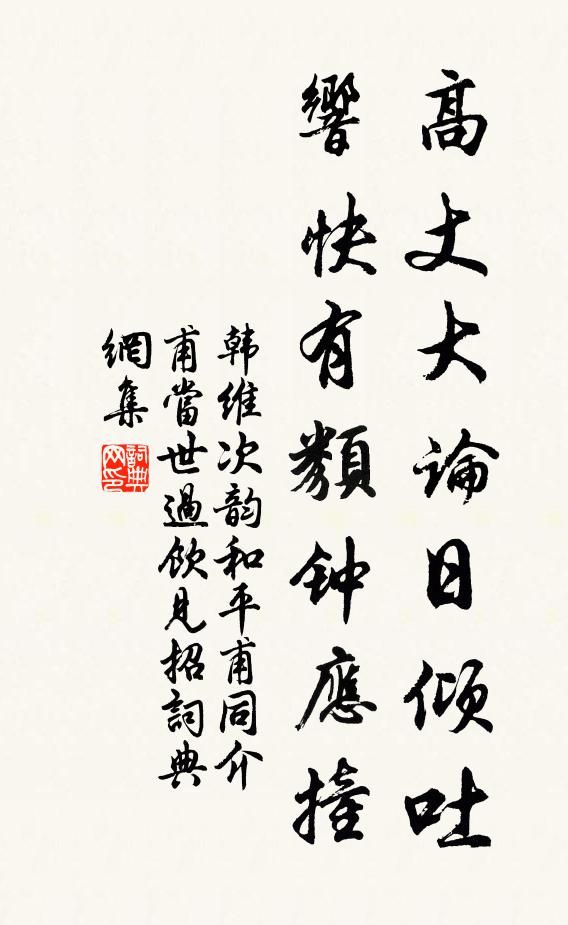 高丈大論日傾吐
響快有類钟應撞
韩維次韵和平甫同介
甫當世過飲見招詞典
網集
詞典网印